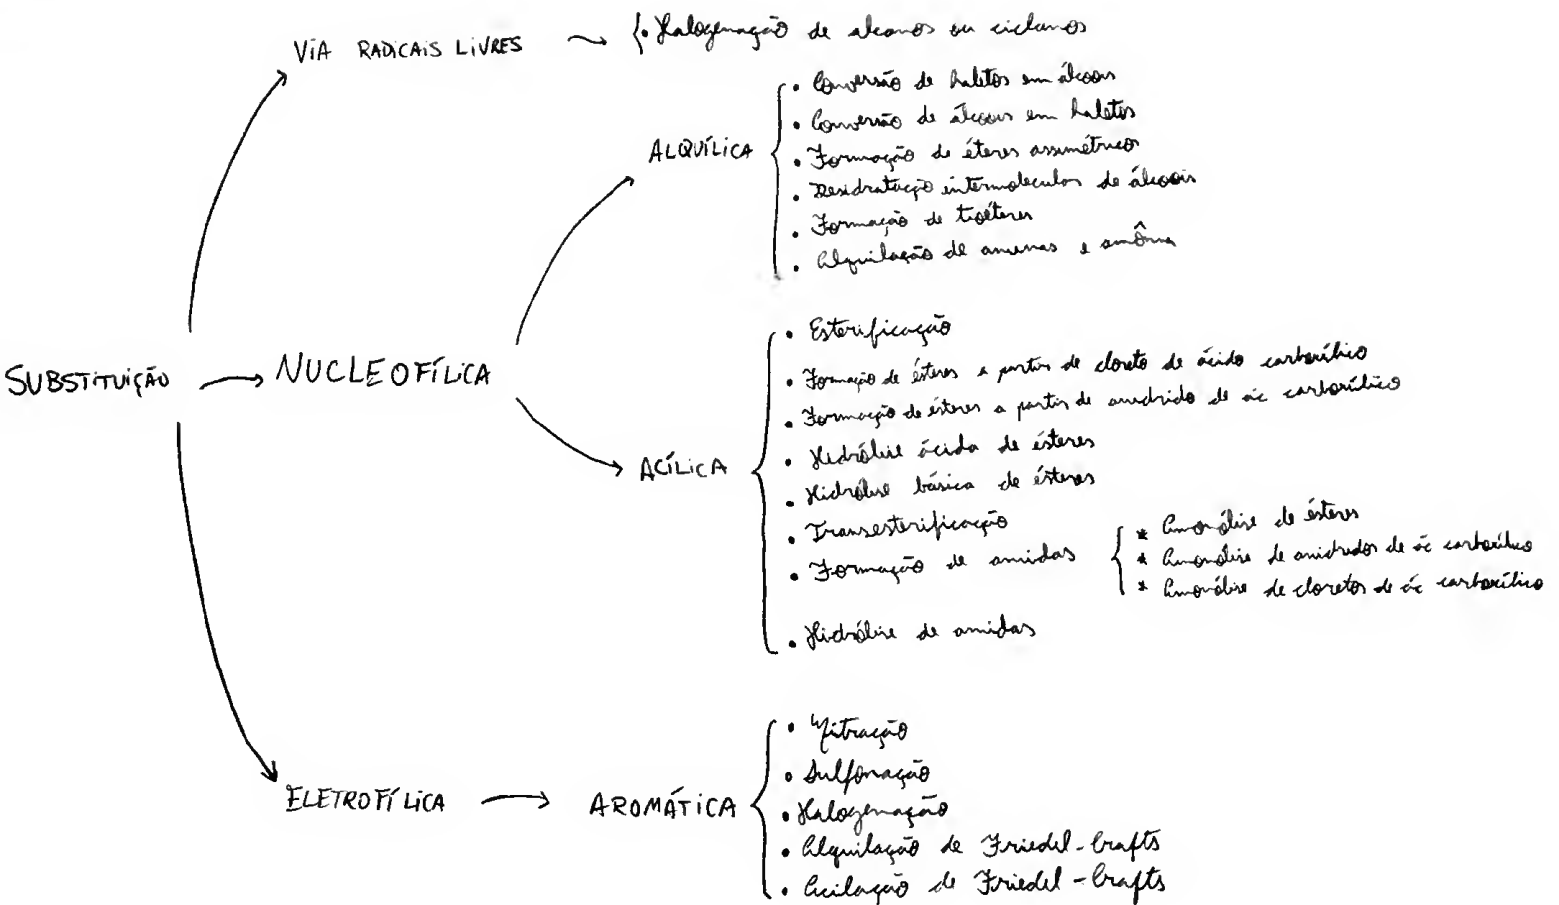 VIA RADICAIS LIVRES
• Halogenação de alcanos ou ciclanos
SUBSTITUIÇÃO
NUCLEOFÍLICA
ALQUÍLICA
• Conversão de haletos em álcoois
• Conversão de álcoois em haletos
• Formação de éteres assimétricos
• Desidratação intermolecular de álcoois
• Formação de tioéteres
• Alquilação de aminas e amônia
ACÍLICA
• Esterificação
• Formação de ésteres a partir de cloreto de ácido carboxílico
• Formação de ésteres a partir de anidrido de ác carboxílico
• Hidrólise ácida de ésteres
• Hidrólise básica de ésteres
• Transesterificação
• Formação de amidas
* Amonólise de ésteres
* Amonólise de anidridos de ác carboxílico
* Amonólise de cloretos de ác carboxílico
• Hidrólise de amidas
ELETROFÍLICA
AROMÁTICA
• Nitração
• Sulfonação
• Halogenação
• Alquilação de Friedel-Crafts
• Acilação de Friedel-Crafts